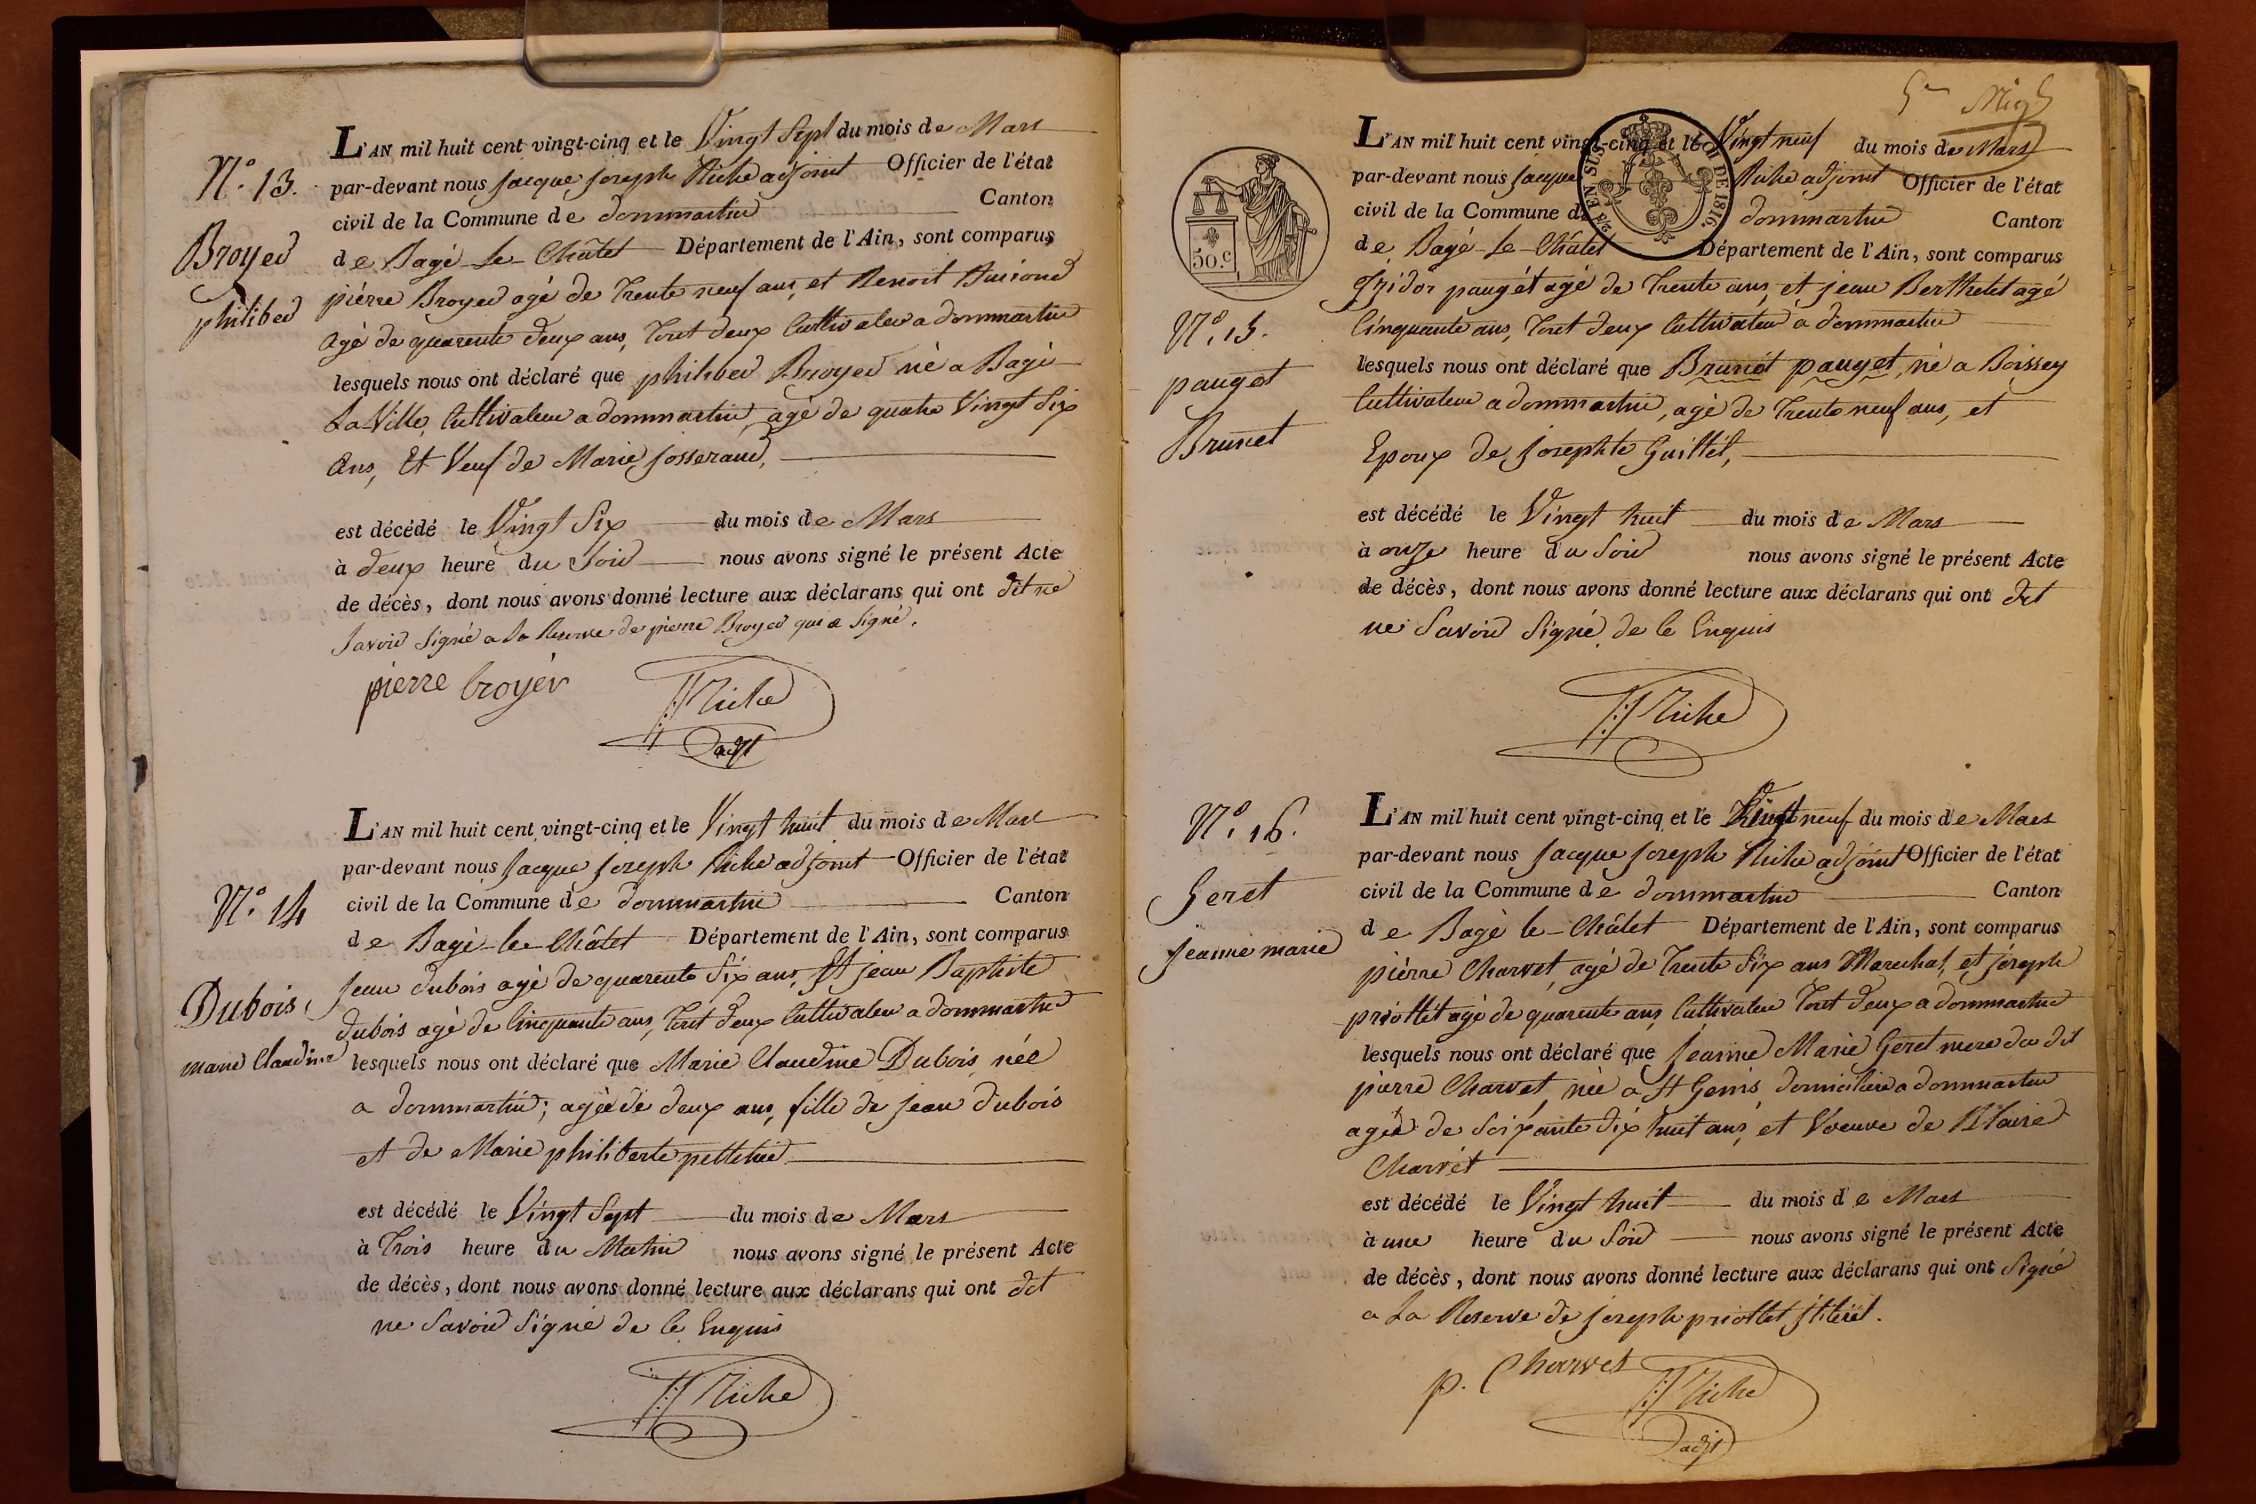 N.° 13.
Broyer
philiber
L'AN mil huit cent vingt-cinq et le Vingt Sept du mois de Mars
par-devant nous Jacque Joseph Riche adjoint Officier de l'état
civil de la Commune de dommartin Canton
de Bagé-le-Châtel Département de l'Ain, sont comparus
piérre Broyer agé de Trente neuf ans, et Benoit Buiron
agé de quarente deux ans, Tout deux Cultivateur a dommartin
lesquels nous ont déclaré que philiber Broyer né a Bagé
La Ville, Cultivateur a dommartin, agé de quatre Vingt Six
ans, Et Veuf de Marie Josserand,
est décédé le Vingt Six du mois de Mars
à deux heure du Soir nous avons signé le présent Acte
de décès, dont nous avons donné lecture aux déclarans qui ont dit ne
Savoir Signé a La Reserve de pierre Broyer qui a Signé.
pierre broyer
Riche
adjt
N.° 14
Dubois
marie Claudine
L'AN mil huit cent vingt-cinq et le Vingt huit du mois de Mars
par-devant nous Jacque Joseph Riche adjoint Officier de l'état
civil de la Commune de dommartin Canton
de Bagé-le-Châtel Département de l'Ain, sont comparus
Jean dubois agé de quarente Six ans, Et jean Baptiste
dubois agé de Cinquante ans, Tout deux Cultivateur a dommartin
lesquels nous ont déclaré que Marie Claudine Dubois née
a dommartin; agée de deux ans, fille de jean dubois
et de Marie philiberte pelletier
est décédé le Vingt Sept du mois de Mars
à Trois heure du Matin nous avons signé le présent Acte
de décès, dont nous avons donné lecture aux déclarans qui ont dit
ne Savoir Signé de ce Enquis
Riche
50.c
EN SUS
LOI DE 1816.
N.° 15.
pauget
Brunet
L'AN mil huit cent vingt-cinq et le Vingt neuf du mois de Mars
par-devant nous Jacque Riche adjoint Officier de l'état
civil de la Commune de dommartin Canton
de Bagé-le-Châtel Département de l'Ain, sont comparus
Izidor paugét agé de Trente ans, et jean Berthelet agé
Cinquante ans, Tout deux Cultivateur a dommartin
lesquels nous ont déclaré que Brunét pauget, né a Boissey
Cultivateur a dommartin, agé de Trente neuf ans, et
Epoux de Josephte Guillet,
est décédé le Vingt huit du mois de Mars
à onze heure du Soir nous avons signé le présent Acte
de décès, dont nous avons donné lecture aux déclarans qui ont dit
ne Savoir Signé de ce Enquis
Riche
N.° 16.
Geret
Jeanne marie
L'AN mil huit cent vingt-cinq et le Vingt neuf du mois de Mars
par-devant nous Jacque Joseph Riche adjoint Officier de l'état
civil de la Commune de dommartin Canton
de Bagé le-Châtel Département de l'Ain, sont comparus
piérre Charvet, agé de Trente Six ans Marechal, et joseph
priottet agé de quarente ans Cultivateur Tout deux a dommartin
lesquels nous ont déclaré que Jeanne Marie Geret mere du dit
pierre Charvet, née a St Genis, domiciliée a dommartin
agée de Soixante dix huit ans, et Veuve de Blaise
Charvét
est décédé le Vingt huit du mois de Mars
à une heure du Soir nous avons signé le présent Acte
de décès, dont nous avons donné lecture aux déclarans qui ont Signé
a La Reserve de joseph priottet
p. Charvet
Riche
adjt